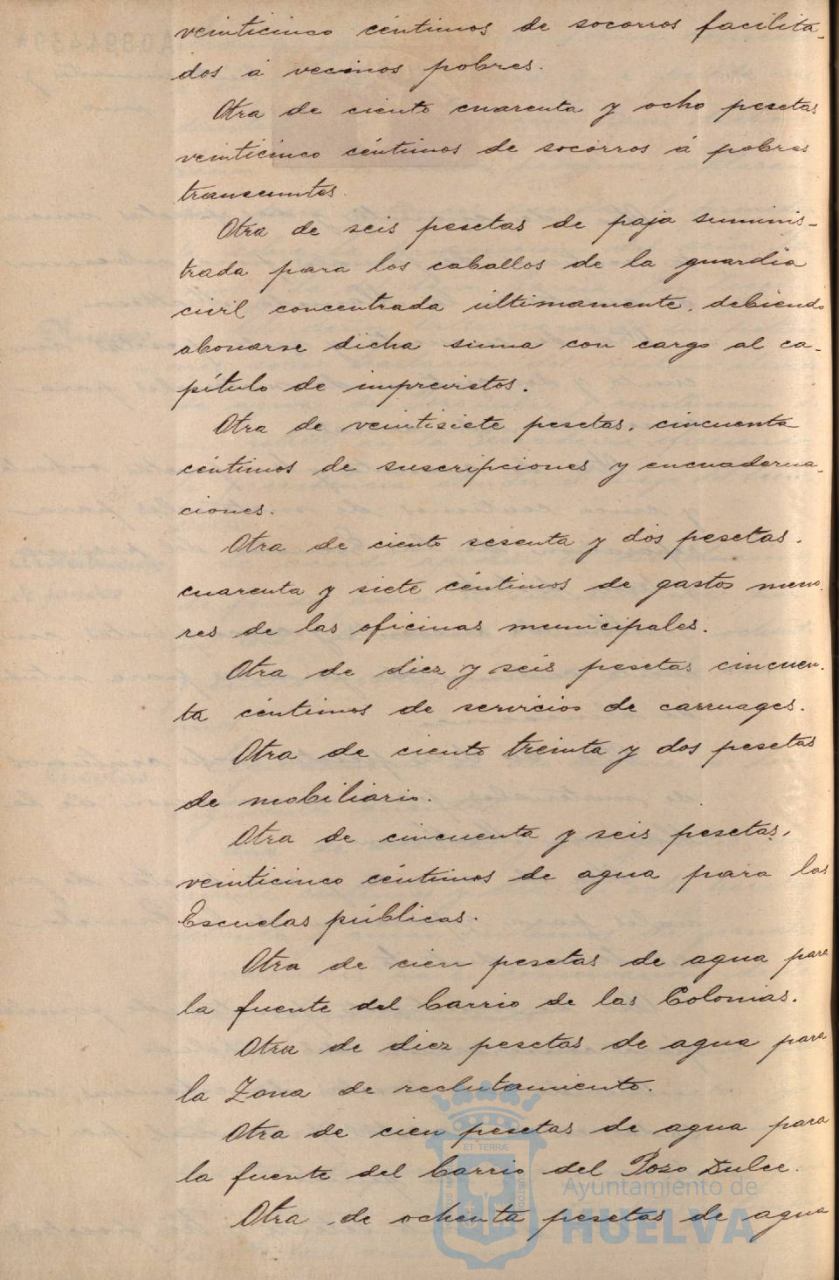 veinticinco céntimos de socorros facilita-
dos á vecinos pobres.
Otra de ciento cuarenta y ocho pesetas
veinticinco céntimos de socorros á pobres
transeuntes.
Otra de seis pesetas de paja suminis-
trada para los caballos de la guardia
civil concentrada ultimamente, debiendo
abonarse dicha suma con cargo al ca-
pítulo de imprevistos.
Otra de veintisiete pesetas, cincuenta
céntimos de suscripciones y encuaderna-
ciones.
Otra de ciento sesenta y dos pesetas,
cuarenta y siete céntimos de gastos meno-
res de las oficinas municipales.
Otra de diez y seis pesetas cincuen-
ta céntimos de servicios de carruages.
Otra de ciento treinta y dos pesetas
de mobiliario.
Otra de cincuenta y seis pesetas,
veinticinco céntimos de agua para las
Escuelas públicas.
Otra de cien pesetas de agua para
la fuente del barrio de las Colonias.
Otra de diez pesetas de agua para
la Zona de reclutamiento.
Otra de cien pesetas de agua para
la fuente del barrio del Pozo Dulce.
Otra de ochenta pesetas de agua
Ayuntamiento de
HUELVA